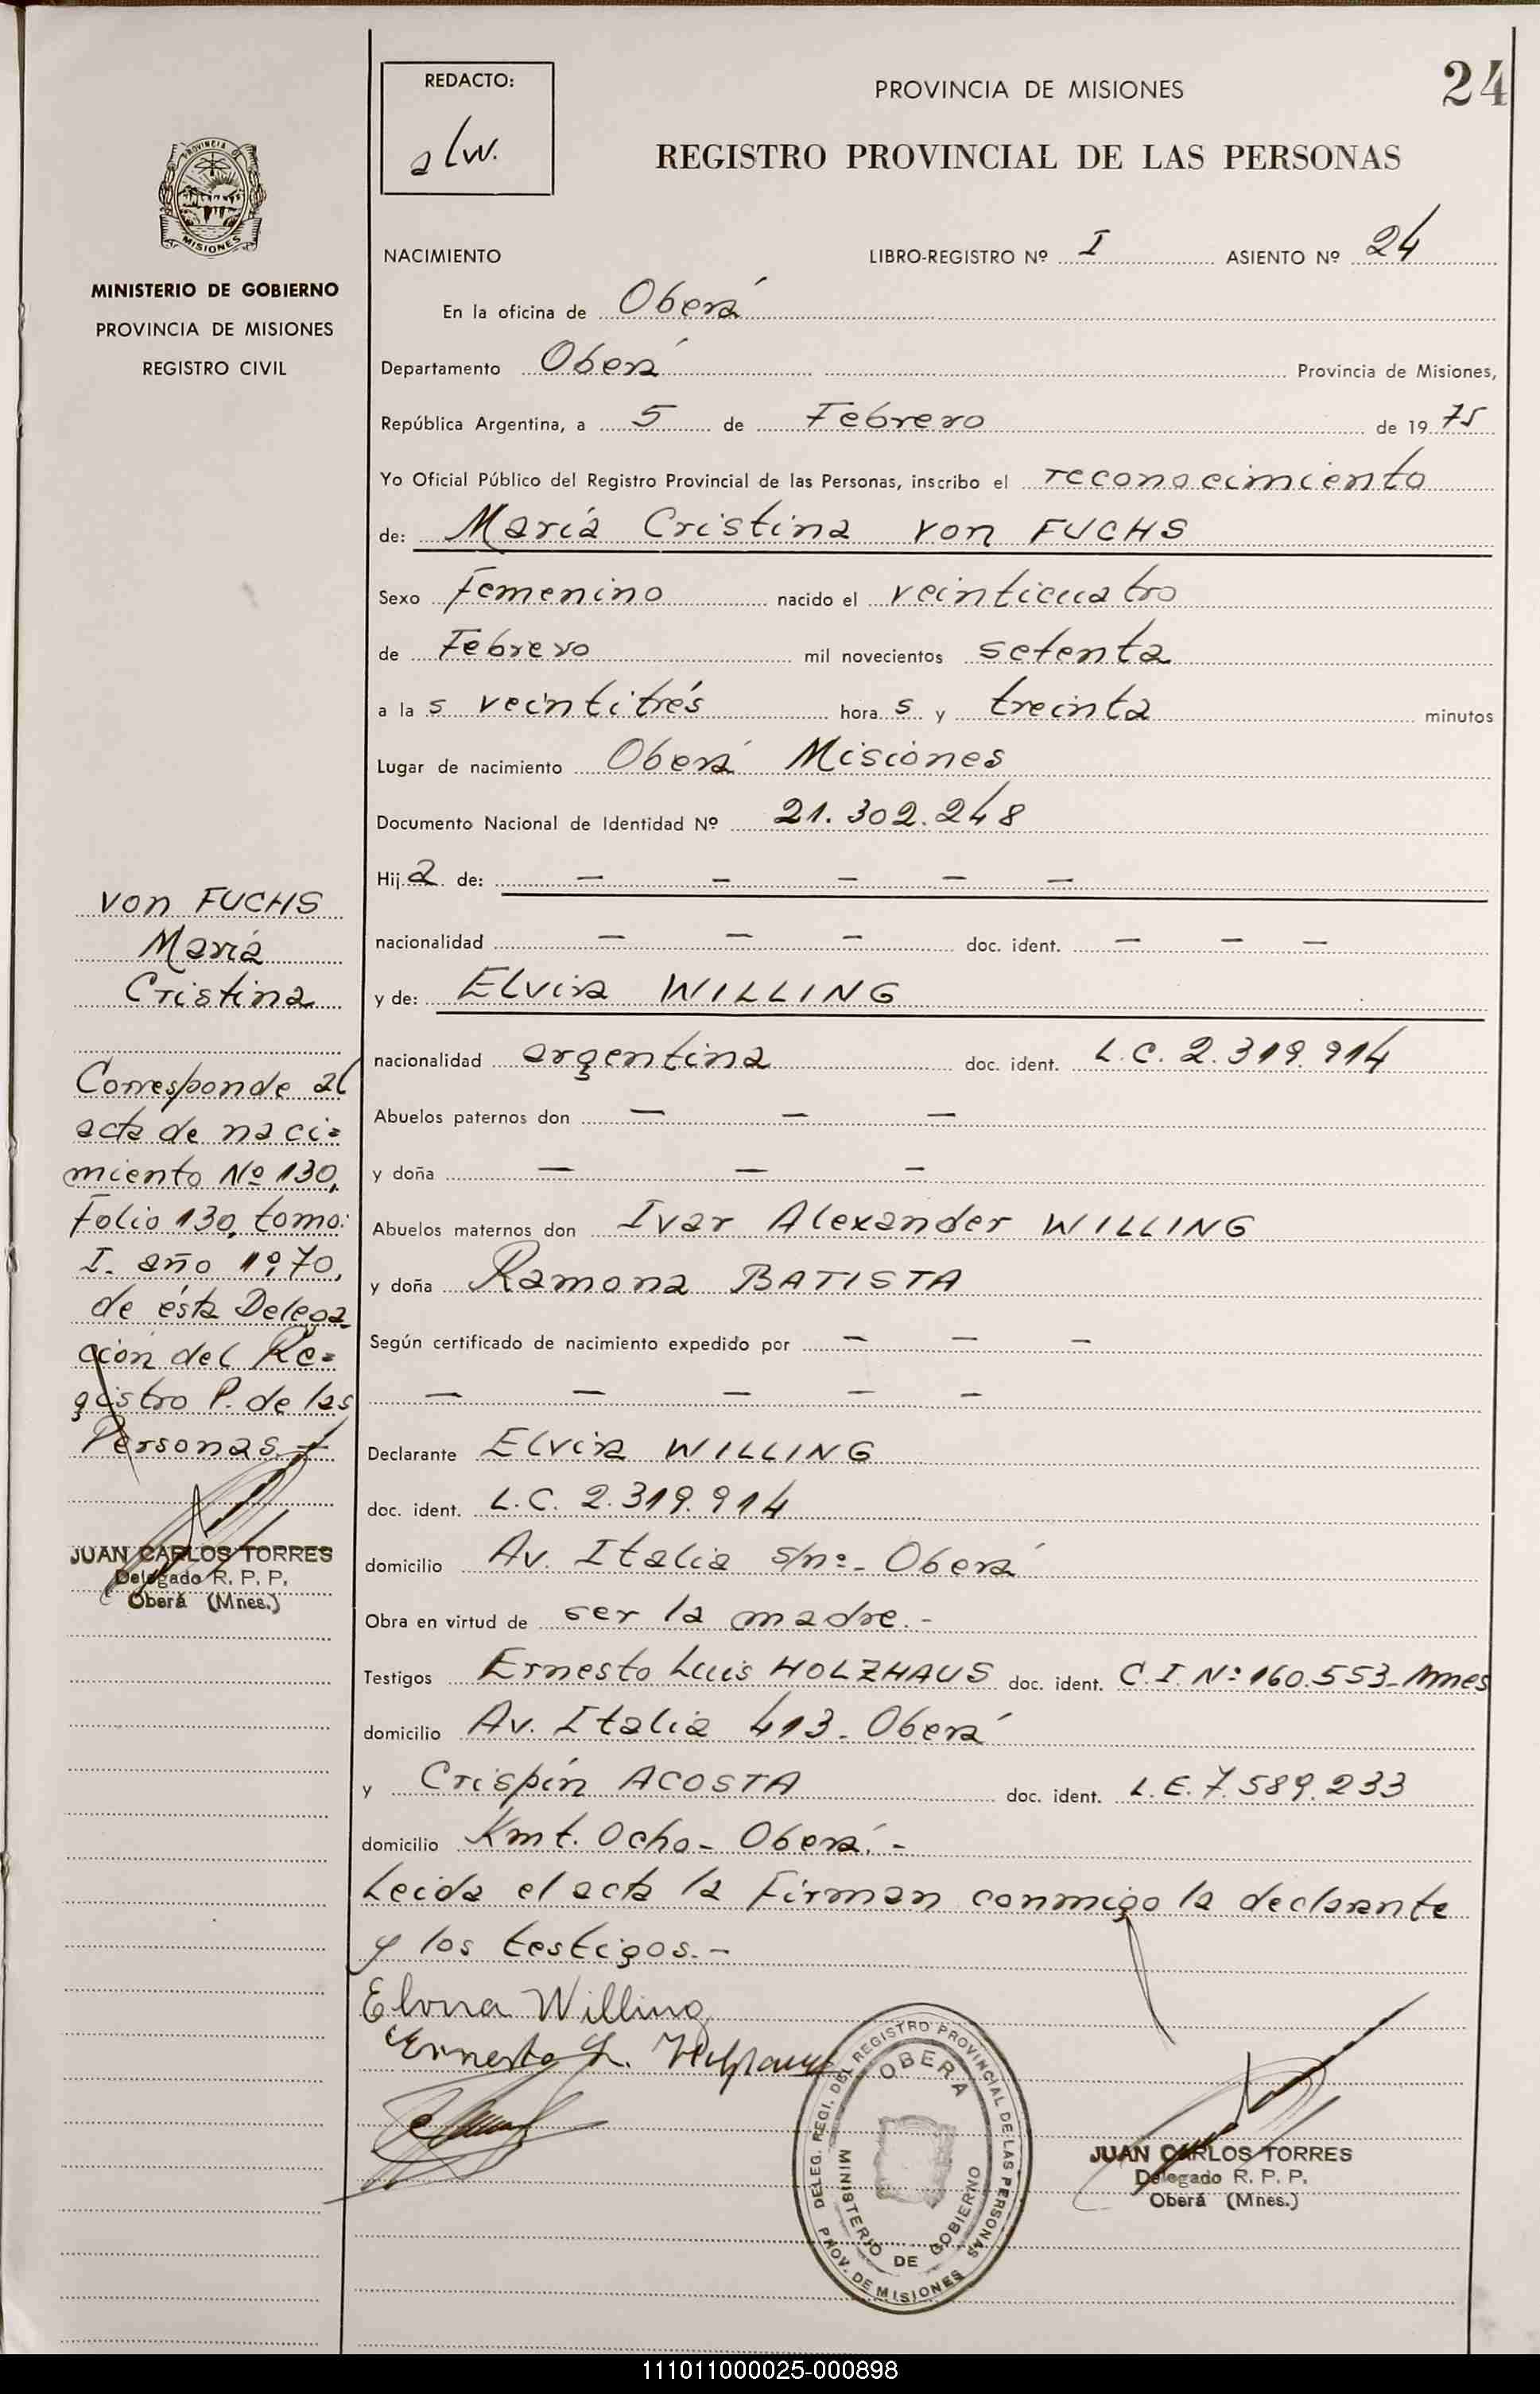 24
REDACTO:
alw.
PROVINCIA DE MISIONES
REGISTRO PROVINCIAL DE LAS PERSONAS
PROVINCIA
MISIONES
MINISTERIO DE GOBIERNO
PROVINCIA DE MISIONES
REGISTRO CIVIL
NACIMIENTO LIBRO-REGISTRO Nº I ASIENTO Nº 24
En la oficina de Oberá
Departamento Oberá Provincia de Misiones,
República Argentina, a 5 de Febrero de 1975
Yo Oficial Público del Registro Provincial de las Personas, inscribo el reconocimiento
de: María Cristina von FUCHS
Sexo Femenino nacido el veinticuatro
de Febrero mil novecientos setenta
a la s veintitrés hora s y treinta minutos
Lugar de nacimiento Oberá Misiones
Documento Nacional de Identidad Nº 21.302.248
Hij a de: — — — — —
nacionalidad — — — doc. ident. — — —
y de: Elvira WILLING
nacionalidad argentina doc. ident. L.C. 2.319.914
Abuelos paternos don — — —
y doña — — —
Abuelos maternos don Ivar Alexander WILLING
y doña Ramona BATISTA
Según certificado de nacimiento expedido por — — —
— — — — —
Declarante Elvira WILLING
doc. ident. L.C. 2.319.914
domicilio Av. Italia s/nº- Oberá
Obra en virtud de ser la madre.-
Testigos Ernesto Luis HOLZHAUS doc. ident. C.I. Nº 160.553-Mnes
domicilio Av. Italia 413- Oberá
y Crispín ACOSTA doc. ident. L.E. 7.589.233
domicilio Kmt. Ocho- Oberá.-
Leida el acta la firman conmigo la declarante
y los testigos.-
von FUCHS
María
Cristina
Corresponde al
acta de naci=
miento Nº 130,
Folio 130, tomo:
I. año 1970,
de ésta Delega-
ción del Re=
gistro P. de las
Personas.
JUAN CARLOS TORRES
Delegado R. P. P.
Oberá (Mnes.)
Elvira Willing
Ernesto L. Holzhaus
DELEG. REGI. DEL REGISTRO PROVINCIAL DE LAS PERSONAS
OBERA
MINISTERIO DE GOBIERNO
PROV. DE MISIONES
JUAN CARLOS TORRES
Delegado R. P. P.
Oberá (Mnes.)
111011000025-000898